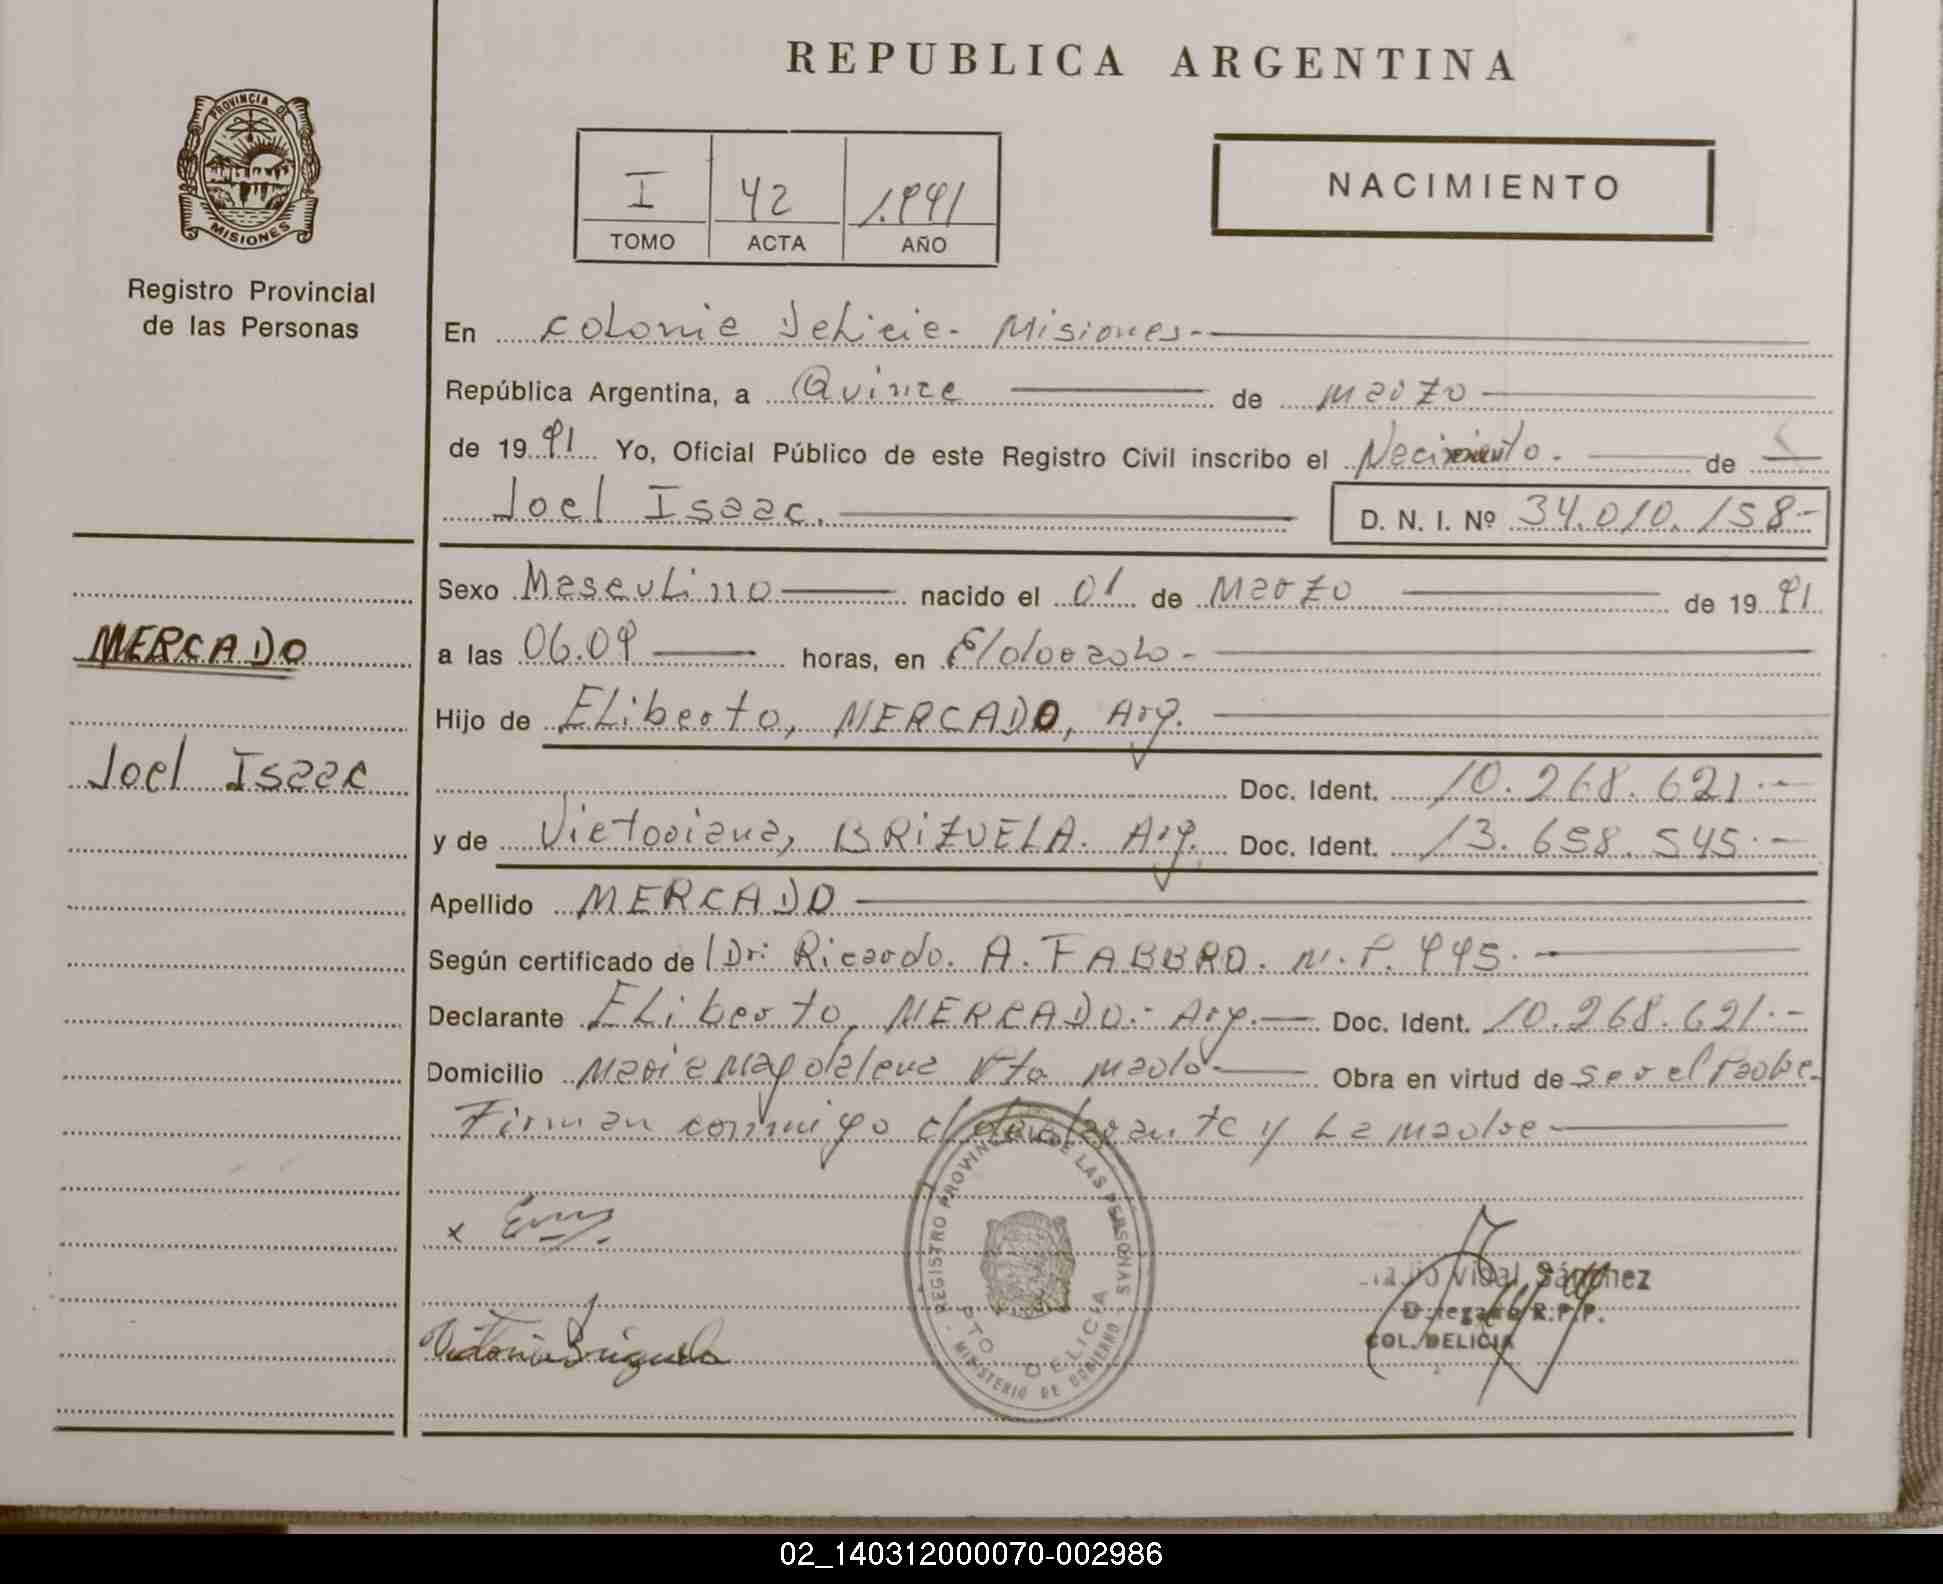 REPUBLICA ARGENTINA
PROVINCIA DE
MISIONES
Registro Provincial
de las Personas
I 42 1.991
TOMO ACTA AÑO
NACIMIENTO
En Colonia Delicia - Misiones -
República Argentina, a Quince de marzo
de 19 91 Yo, Oficial Público de este Registro Civil inscribo el Nacimiento. de
Joel Isaac. D. N. I. Nº 34.010.158-
Sexo Masculino nacido el 01 de Marzo de 19 91
MERCADO
a las 06.09 horas, en Eldorado -
Hijo de Eliberto, MERCADO, Arg.
Joel Isaac
Doc. Ident. 10.268.621.-
y de Victoriana, BRIZUELA. Arg. Doc. Ident. 13.658.545.-
Apellido MERCADO
Según certificado de Dr: Ricardo. A. FABBRO. M.P. 995.-
Declarante Eliberto, MERCADO.- Arg. Doc. Ident. 10.268.621.-
Domicilio Maria Magdalena Pto mado Obra en virtud de ser el Padre.
Firman conmigo el declarante y La madre
REGISTRO PROVINCIAL DE LAS PERSONAS
PTO DELICIA
MINISTERIO DE GOBIERNO
x
Vidal Sánchez
Delegado R.P.P.
COL. DELICIA
Victoria Brizuela
02_140312000070-002986